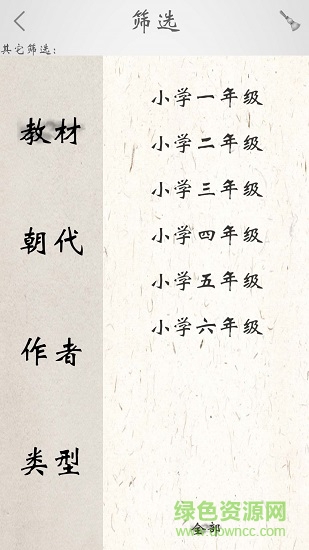 筛选
其它筛选:
教材
朝代
作者
类型
小学一年级
小学二年级
小学三年级
小学四年级
小学五年级
小学六年级
全部
绿色资源网
www.downcc.com